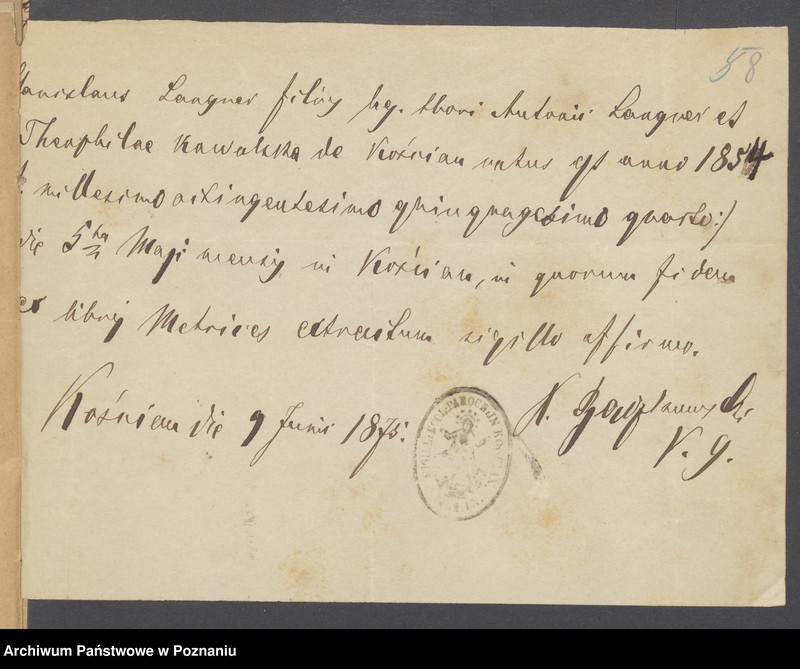 58
Stanislaus Langner filius leg. thori Antonii Langner et
Theophilae Kawalska de Kościan natus est anno 1854
millesimo octingentesimo quinquagesimo quarto:/
die 5ta Maji mensis in Kościan, in quorum fidem
ex libris Metrices extractum sigillo affirmo.
Kościan die 9 Junii 1875.
V. g.
Archiwum Państwowe w Poznaniu